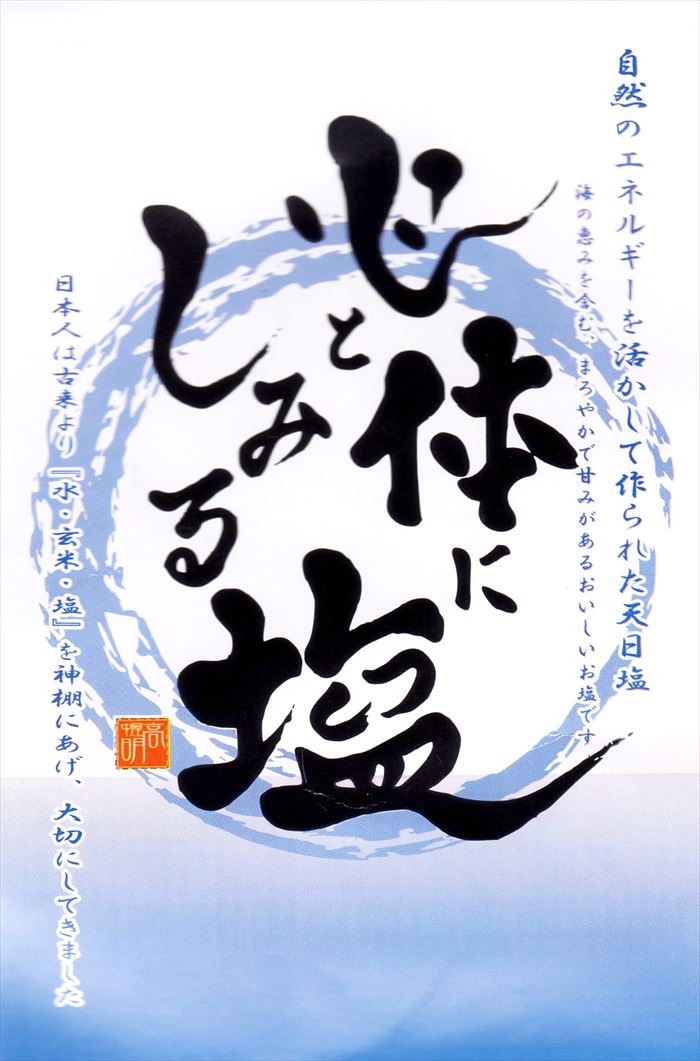 自然のエネルギーを活かして作られた天日塩
海の恵みを含む、まろやかで甘みがあるおいしいお塩です
心と
体に
しみる
塩
日本人は古来より『水・玄米・塩』を神棚にあげ、大切にしてきました